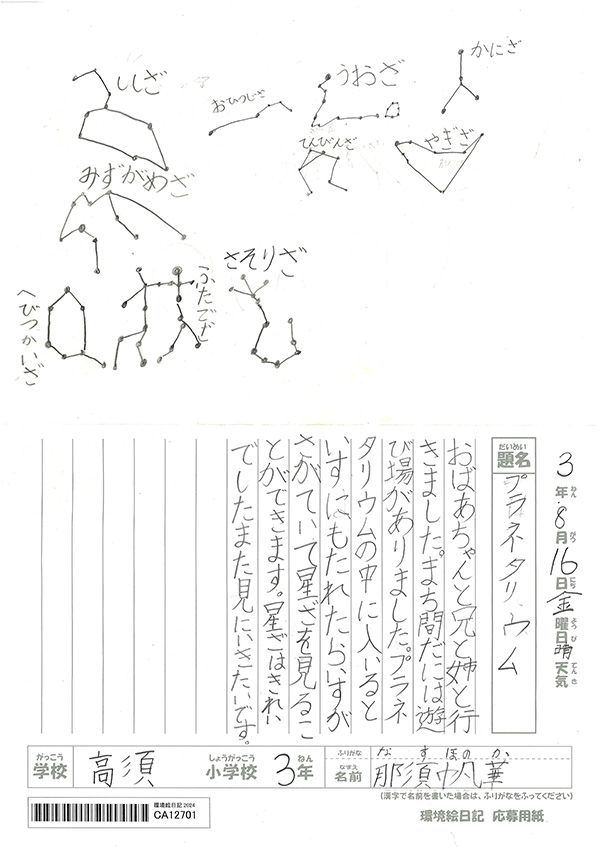 ししざ
おひつじざ
うおざ
かにざ
てんびんざ
やぎざ
みずがめざ
さそりざ
ふたござ
へびつかいざ
3年8月16日金曜日晴天気
ねん がつ にち ようび てんき
だいめい
題名 プラネタリウム
おばあちゃんと兄と姉と行
きました。まち間だには遊
び場がありました。プラネ
タリウムの中に入いると
いすにもたれたらいすが
さがていて星ざを見るこ
とができます。星ざはきれい
でしたまた見にいきたいです。
がっこう しょうがっこう ねん ふりがな なすほのか
学校 高須 小学校 3年 なまえ 名前 那須帆華
(漢字で名前を書いた場合は、ふりがなをふってください)
環境絵日記2024
CA12701
環境絵日記 応募用紙